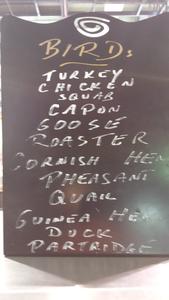 BIRDs
TURKEY
CHICKEN
SQUAB
CAPON
GOOSE
ROASTER
CORNISH HEN
PHEASANT
QUAIL
GUINEA HEN
DUCK
PARTRIDGE